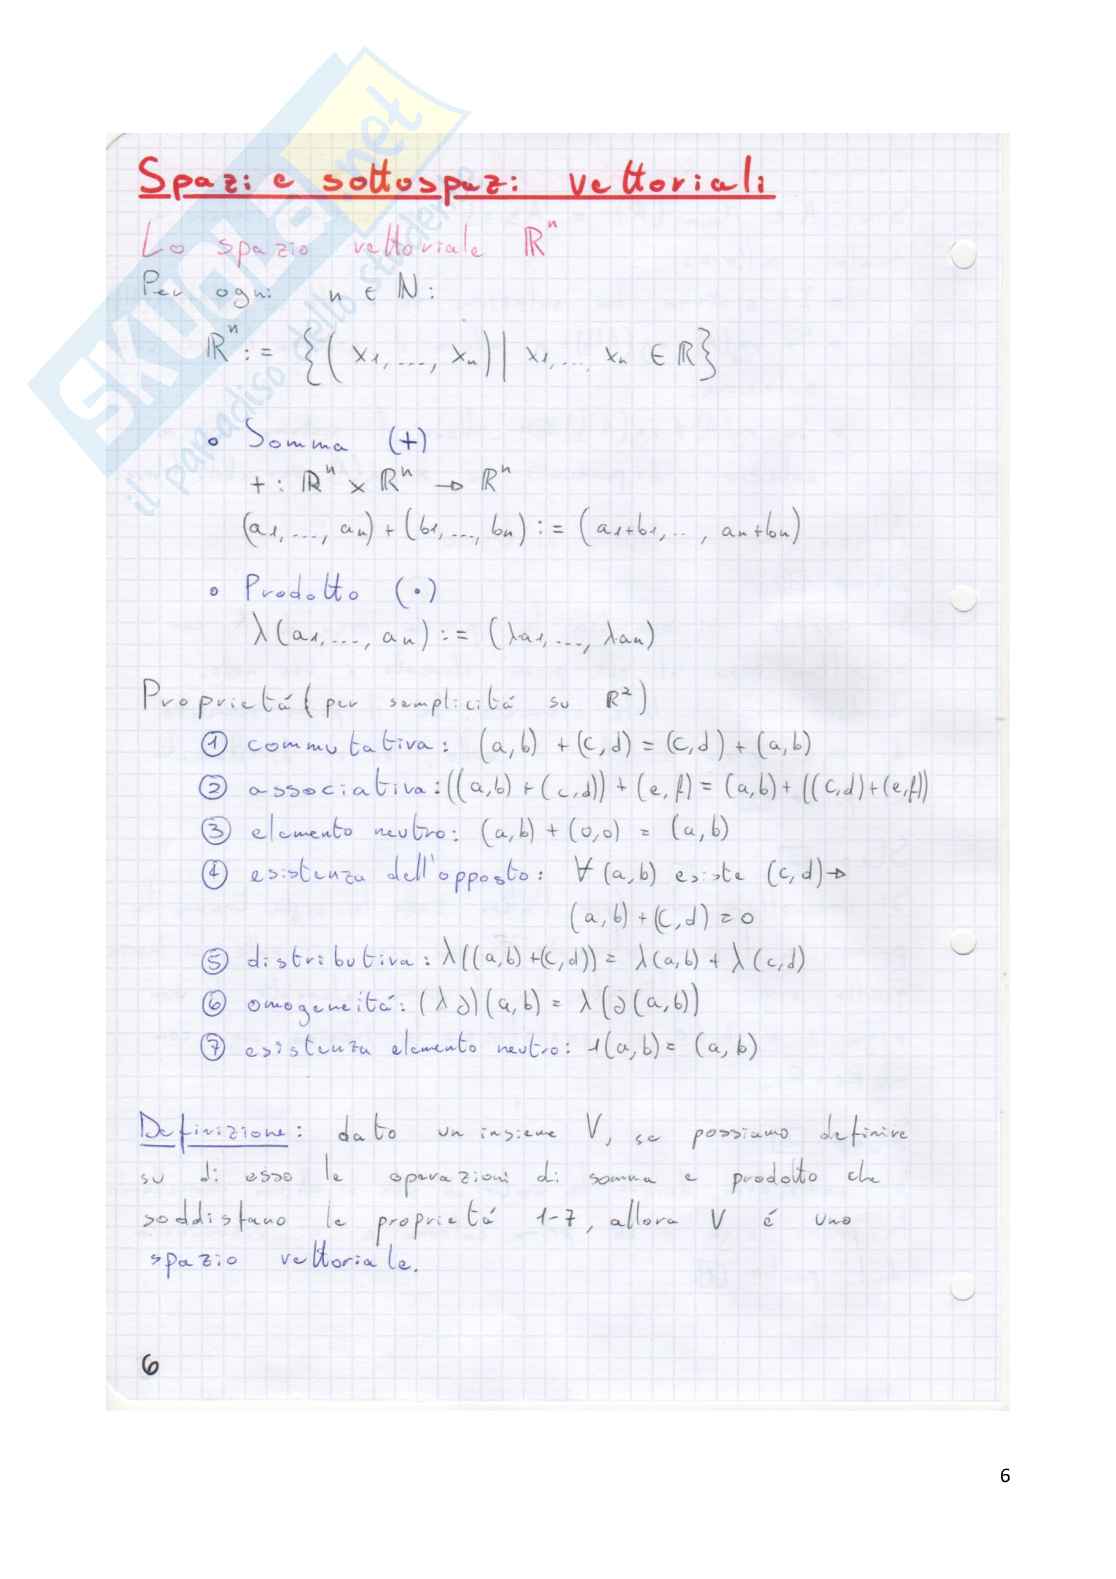 SKUOLA.net
il paradiso dello studente
Spazi e sottospazi vettoriali
Lo spazio vettoriale ℝⁿ
Per ogni n ∈ ℕ:
ℝⁿ := {(x₁, ..., xₙ) | x₁, ... xₙ ∈ ℝ}
• Somma (+)
+ : ℝⁿ × ℝⁿ → ℝⁿ
(a₁, ..., aₙ) + (b₁, ..., bₙ) := (a₁+b₁, .. , aₙ+bₙ)
• Prodotto (•)
λ(a₁, ..., aₙ) := (λa₁, ..., λaₙ)
Proprietá (per semplicitá su ℝ²)
① commutativa: (a,b) + (c,d) = (c,d) + (a,b)
② associativa: ((a,b) + (c,d)) + (e,f) = (a,b) + ((c,d)+(e,f))
③ elemento neutro: (a,b) + (0,0) = (a,b)
④ esistenza dell'opposto: ∀ (a,b) esiste (c,d) →
(a,b) + (c,d) = 0
⑤ distributiva: λ((a,b)+(c,d)) = λ(a,b) + λ(c,d)
⑥ omogeneitá: (λ∂)(a,b) = λ(∂(a,b))
⑦ esistenza elemento neutro: 1(a,b) = (a,b)
Definizione: dato un insieme V, se possiamo definire
su di esso le operazioni di somma e prodotto che
soddisfano le proprietá 1-7, allora V é uno
spazio vettoriale.
6
6